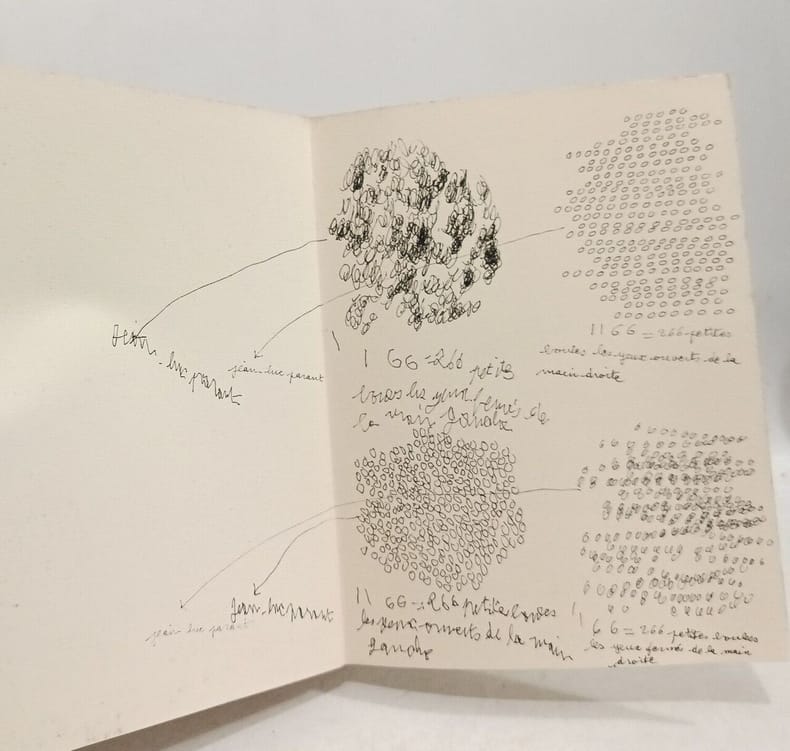 Jean-luc parant
jean-luc parant
jean luc parant
Jean-luc parant
1 66 = 266 petites
boules les yeux fermés de
la main gauche
11 66 = 266 petites
boules les yeux ouverts de la
main droite
11 66 = 266 petites boules
les yeux ouverts de la main
gauche
66 = 266 petites boules
les yeux fermés de la main
droite